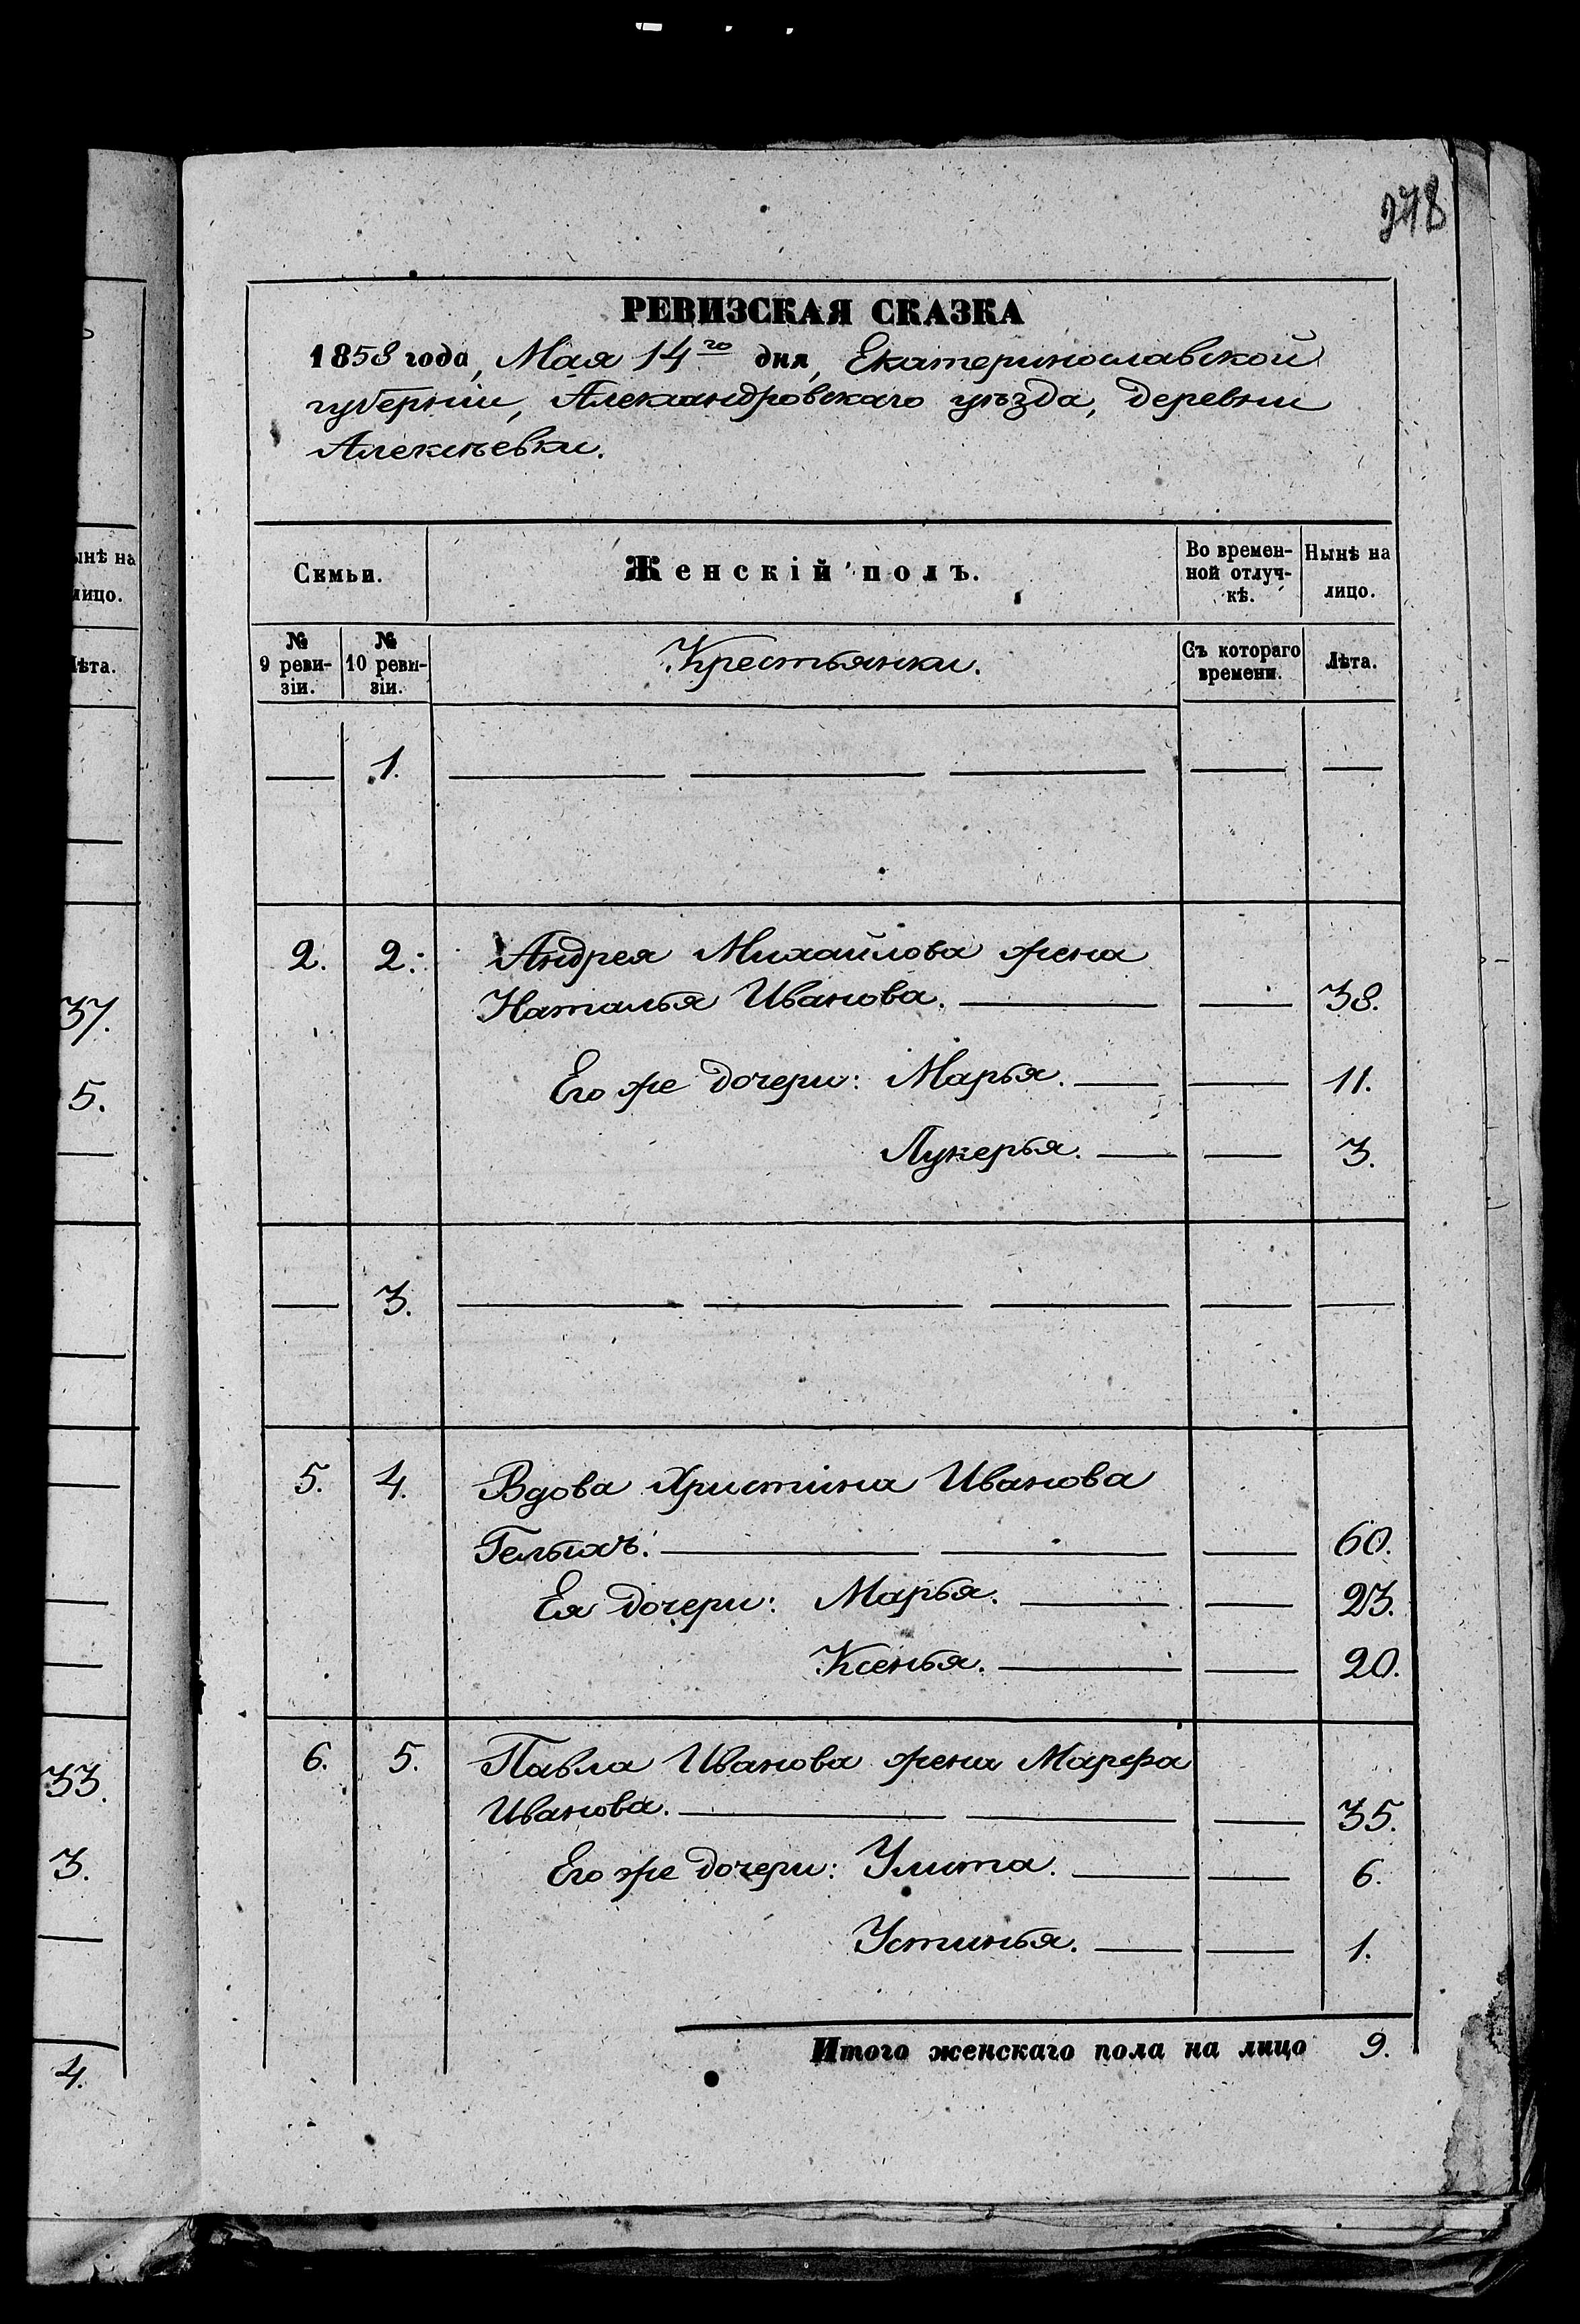 278
РЕВИЗСКАЯ СКАЗКА
1858 года, Мая 14го дня, Екатеринославской
губерніи, Александровскаго уѣзда, деревни
Алексѣевки.
ынѣ на
лицо.
Лѣта.
37.
5.
33.
3.
4.
Семьи.
Женскій полъ.
Во времен-
ной отлуч-
кѣ.
Нынѣ на
лицо.
№
9 реви-
зіи.
№
10 реви-
зіи.
Крестьянки.
Съ котораго
времени.
Лѣта.
— 1. — — — — —
2. 2. Андрея Михайлова жена
Наталья Иванова. — — 38.
Его же дочери: Марья. — — 11.
Лукерья. — — 3.
— 3. — — — — —
5. 4. Вдова Христина Иванова
— — — 60.
Ея дочери: Марья. — — 23.
Ксенья. — — 20.
6. 5. Павла Иванова жена Марфа
Иванова. — — — 35.
Его же дочери: Улита. — — 6.
Устинья. — — 1.
Итого женскаго пола на лицо 9.